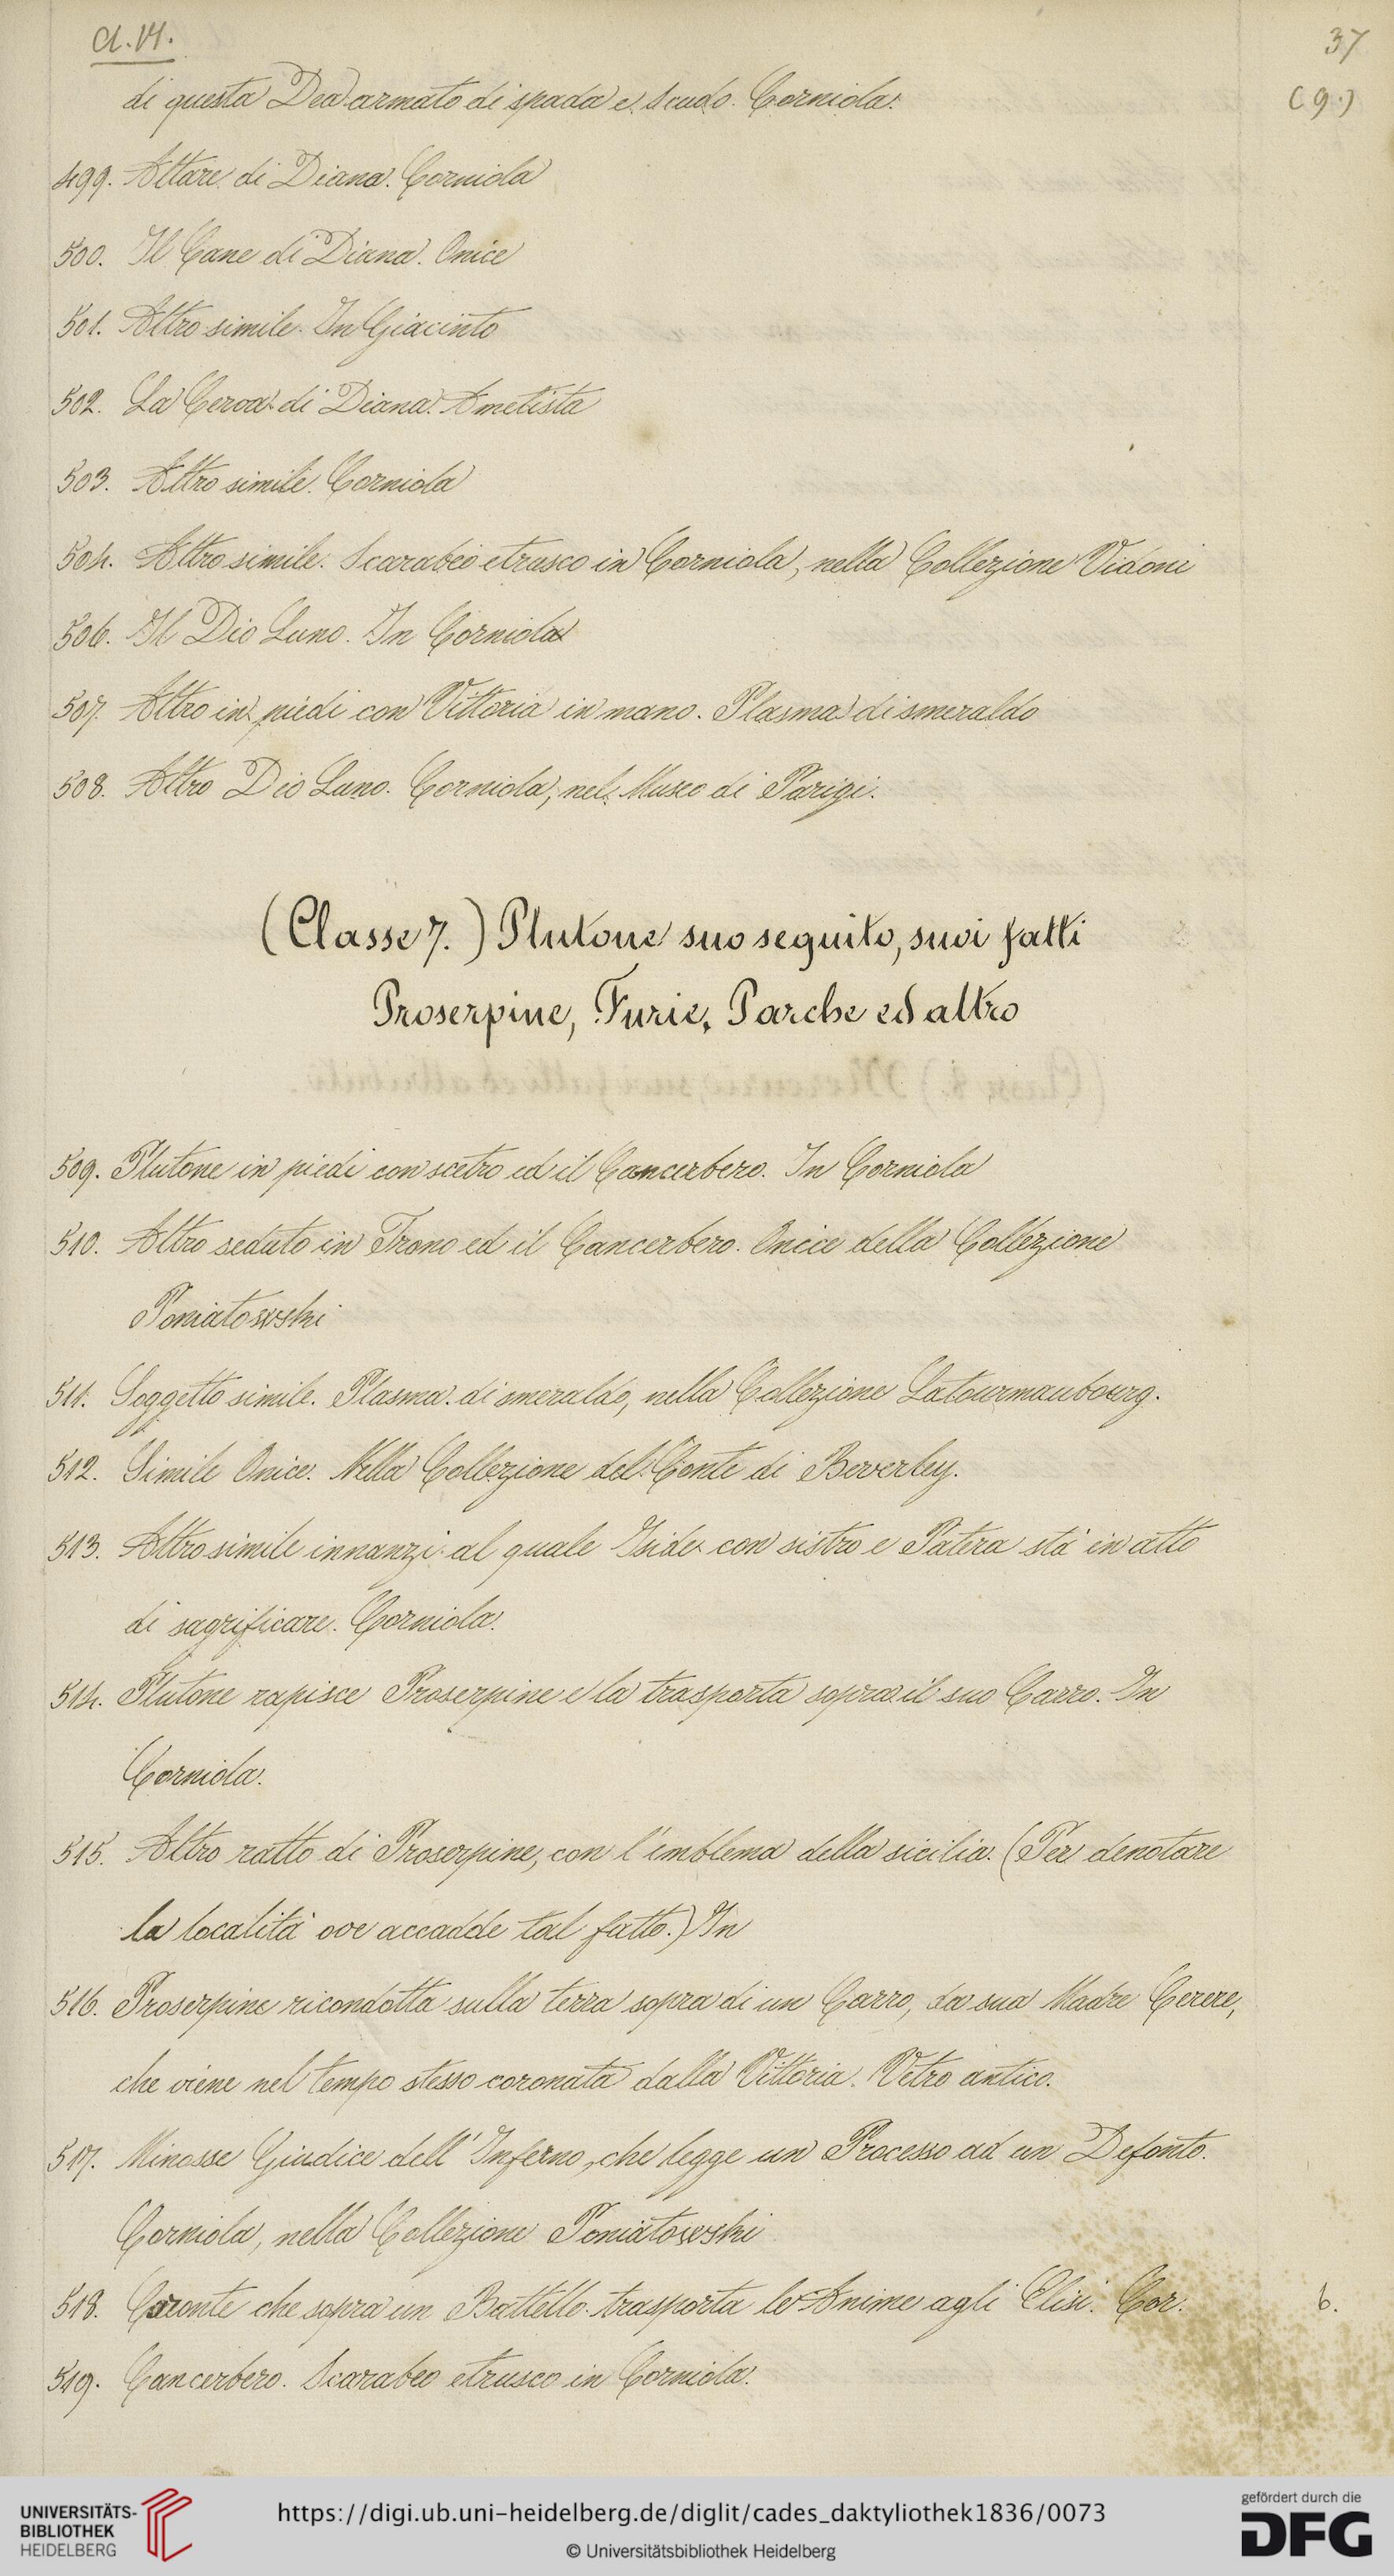 Cl. VI.
37
di questa Dea armato di spada e Scudo. Corniola.
(9.)
499. Altare di Diana. Corniola
500. Il Cane di Diana. Onice
501. Altro simile. In Giacinto
502. La Cerva di Diana. Ametista
503. Altro simile. Corniola
504. Altro simile. Scarabeo etrusco in Corniola, nella Collezione Vidoni
506. Il Dio Luno. In Corniola
507. Altro in piedi con Vittoria in mano. Plasma di smeraldo
508. Altro Dio Luno. Corniola, nel Museo di Parigi.
(Classe 7.) Plutone suo seguito, suoi fatti
Proserpine, Furie, Parche ed altro
509. Plutone in piedi con scetro ed il Cancerbero. In Corniola
510. Altro seduto in Trono ed il Cancerbero. Onice della Collezione
Poniatowski
511. Soggetto simile. Plasma di smeraldo, nella Collezione Latourmaubourg.
512. Simile Onice. Nella Collezione del Conte di Beverley.
513. Altro simile innanzi al quale Iside con sistro e Patera stà in atto
di sagrificare. Corniola.
514. Plutone rapisce Proserpine e la trasporta sopra il suo Carro. In
Corniola.
515. Altro ratto di Proserpine, con l'emblema della sicilia. (Per denotare
la località ove accadde tal fatto.) In
516. Proserpine ricondotta sulla terra sopra di un Carro, da sua Madre Cerere,
che viene nel tempo stesso coronata dalla Vittoria. Vetro antico.
517. Minosse Giudice dell'Inferno, che legge un Processo ad un Defonto.
Corniola, nella Collezione Poniatowski
518. Caronte che sopra un Battello trasporta le Anime agli Elisi. Cor.
6.
519. Cancerbero. Scarabeo etrusco in Corniola.
UNIVERSITÄTS-
BIBLIOTHEK
HEIDELBERG
https://digi.ub.uni-heidelberg.de/diglit/cades_daktyliothek1836/0073
© Universitätsbibliothek Heidelberg
gefördert durch die
DFG